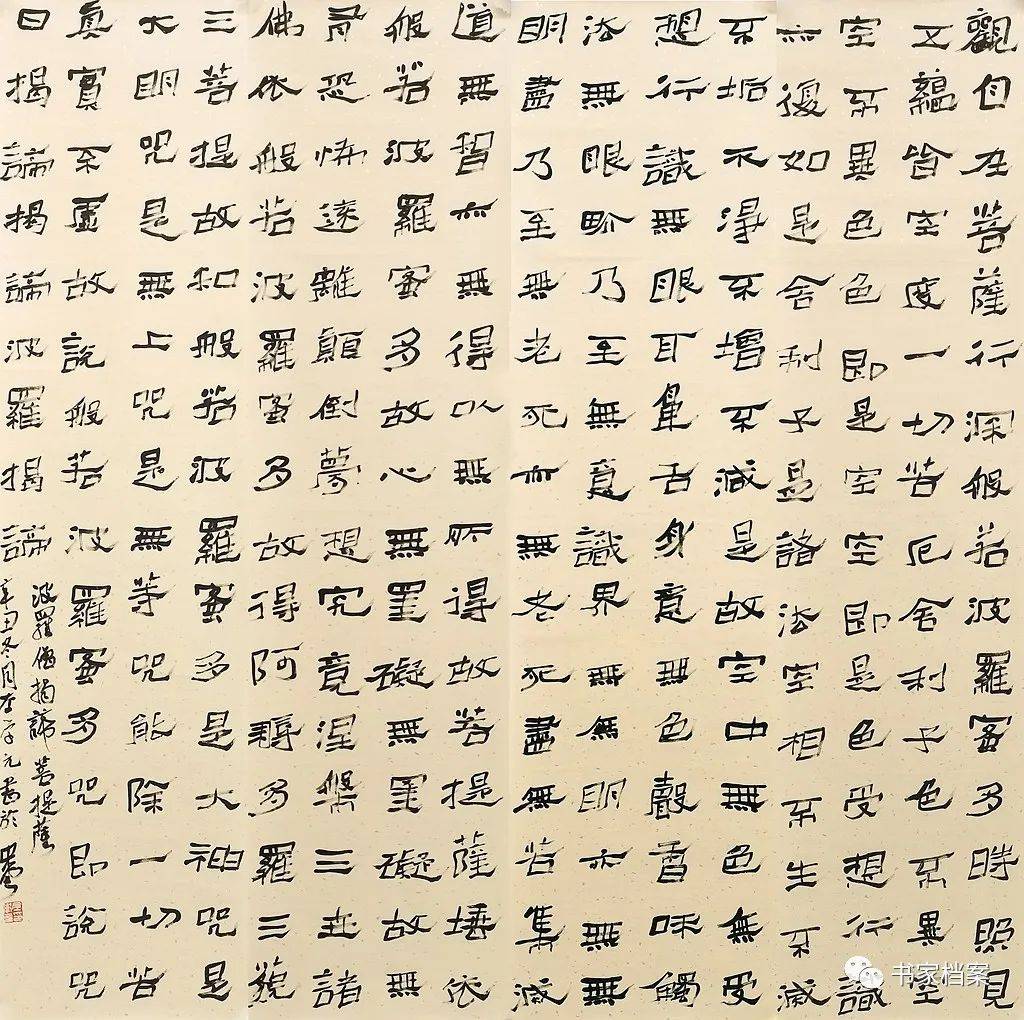 觀自在菩薩行深般若波羅蜜多時照見
五蘊皆空度一切苦厄舍利子色不異空
空不異色色即是空空即是色受想行識
亦復如是舍利子是諸法空相不生不滅
不垢不淨不增不減是故空中無色無受
想行識無眼耳鼻舌身意無色聲香味觸
法無眼界乃至無意識界無無明亦無無
明盡乃至無老死亦無老死盡無苦集滅
道無智亦無得以無所得故菩提薩埵依
般若波羅蜜多故心無罣礙無罣礙故無
有恐怖遠離顛倒夢想究竟涅槃三世諸
佛依般若波羅蜜多故得阿耨多羅三藐
三菩提故知般若波羅蜜多是大神咒是
大明咒是無上咒是無等咒能除一切苦
真實不虛故說般若波羅蜜多咒即說咒
曰揭諦揭諦波羅揭諦
波羅僧揭諦菩提薩
辛丑冬月李学元書於
书家档案